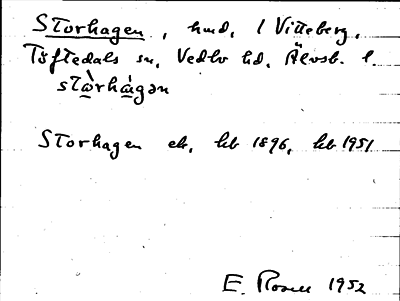 Storhagen, hmd, l Vitteberg,
Töftedals sn, Vedbo hd, Älvsb. l.
stòrhágən
Storhagen ek, kb 1896, kb 1951
E. Rosell 1952